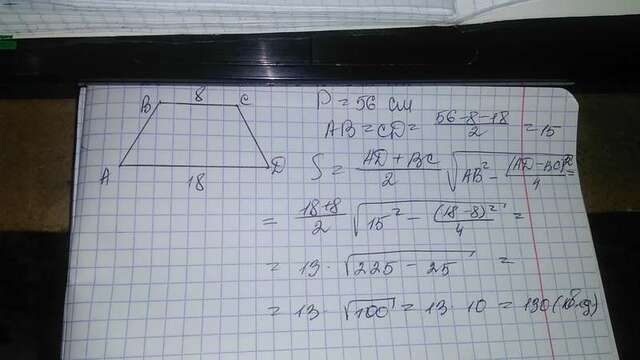 8
B C
A D
18
P = 56 см
AB = CD = (56-8-18)/2 = 15
S = (AD + BC)/2 √(AB² - (AD-BC)²/4) =
= (18+8)/2 √(15² - (18-8)²/4) =
= 13 · √(225 - 25) =
= 13 · √100 = 13 · 10 = 130